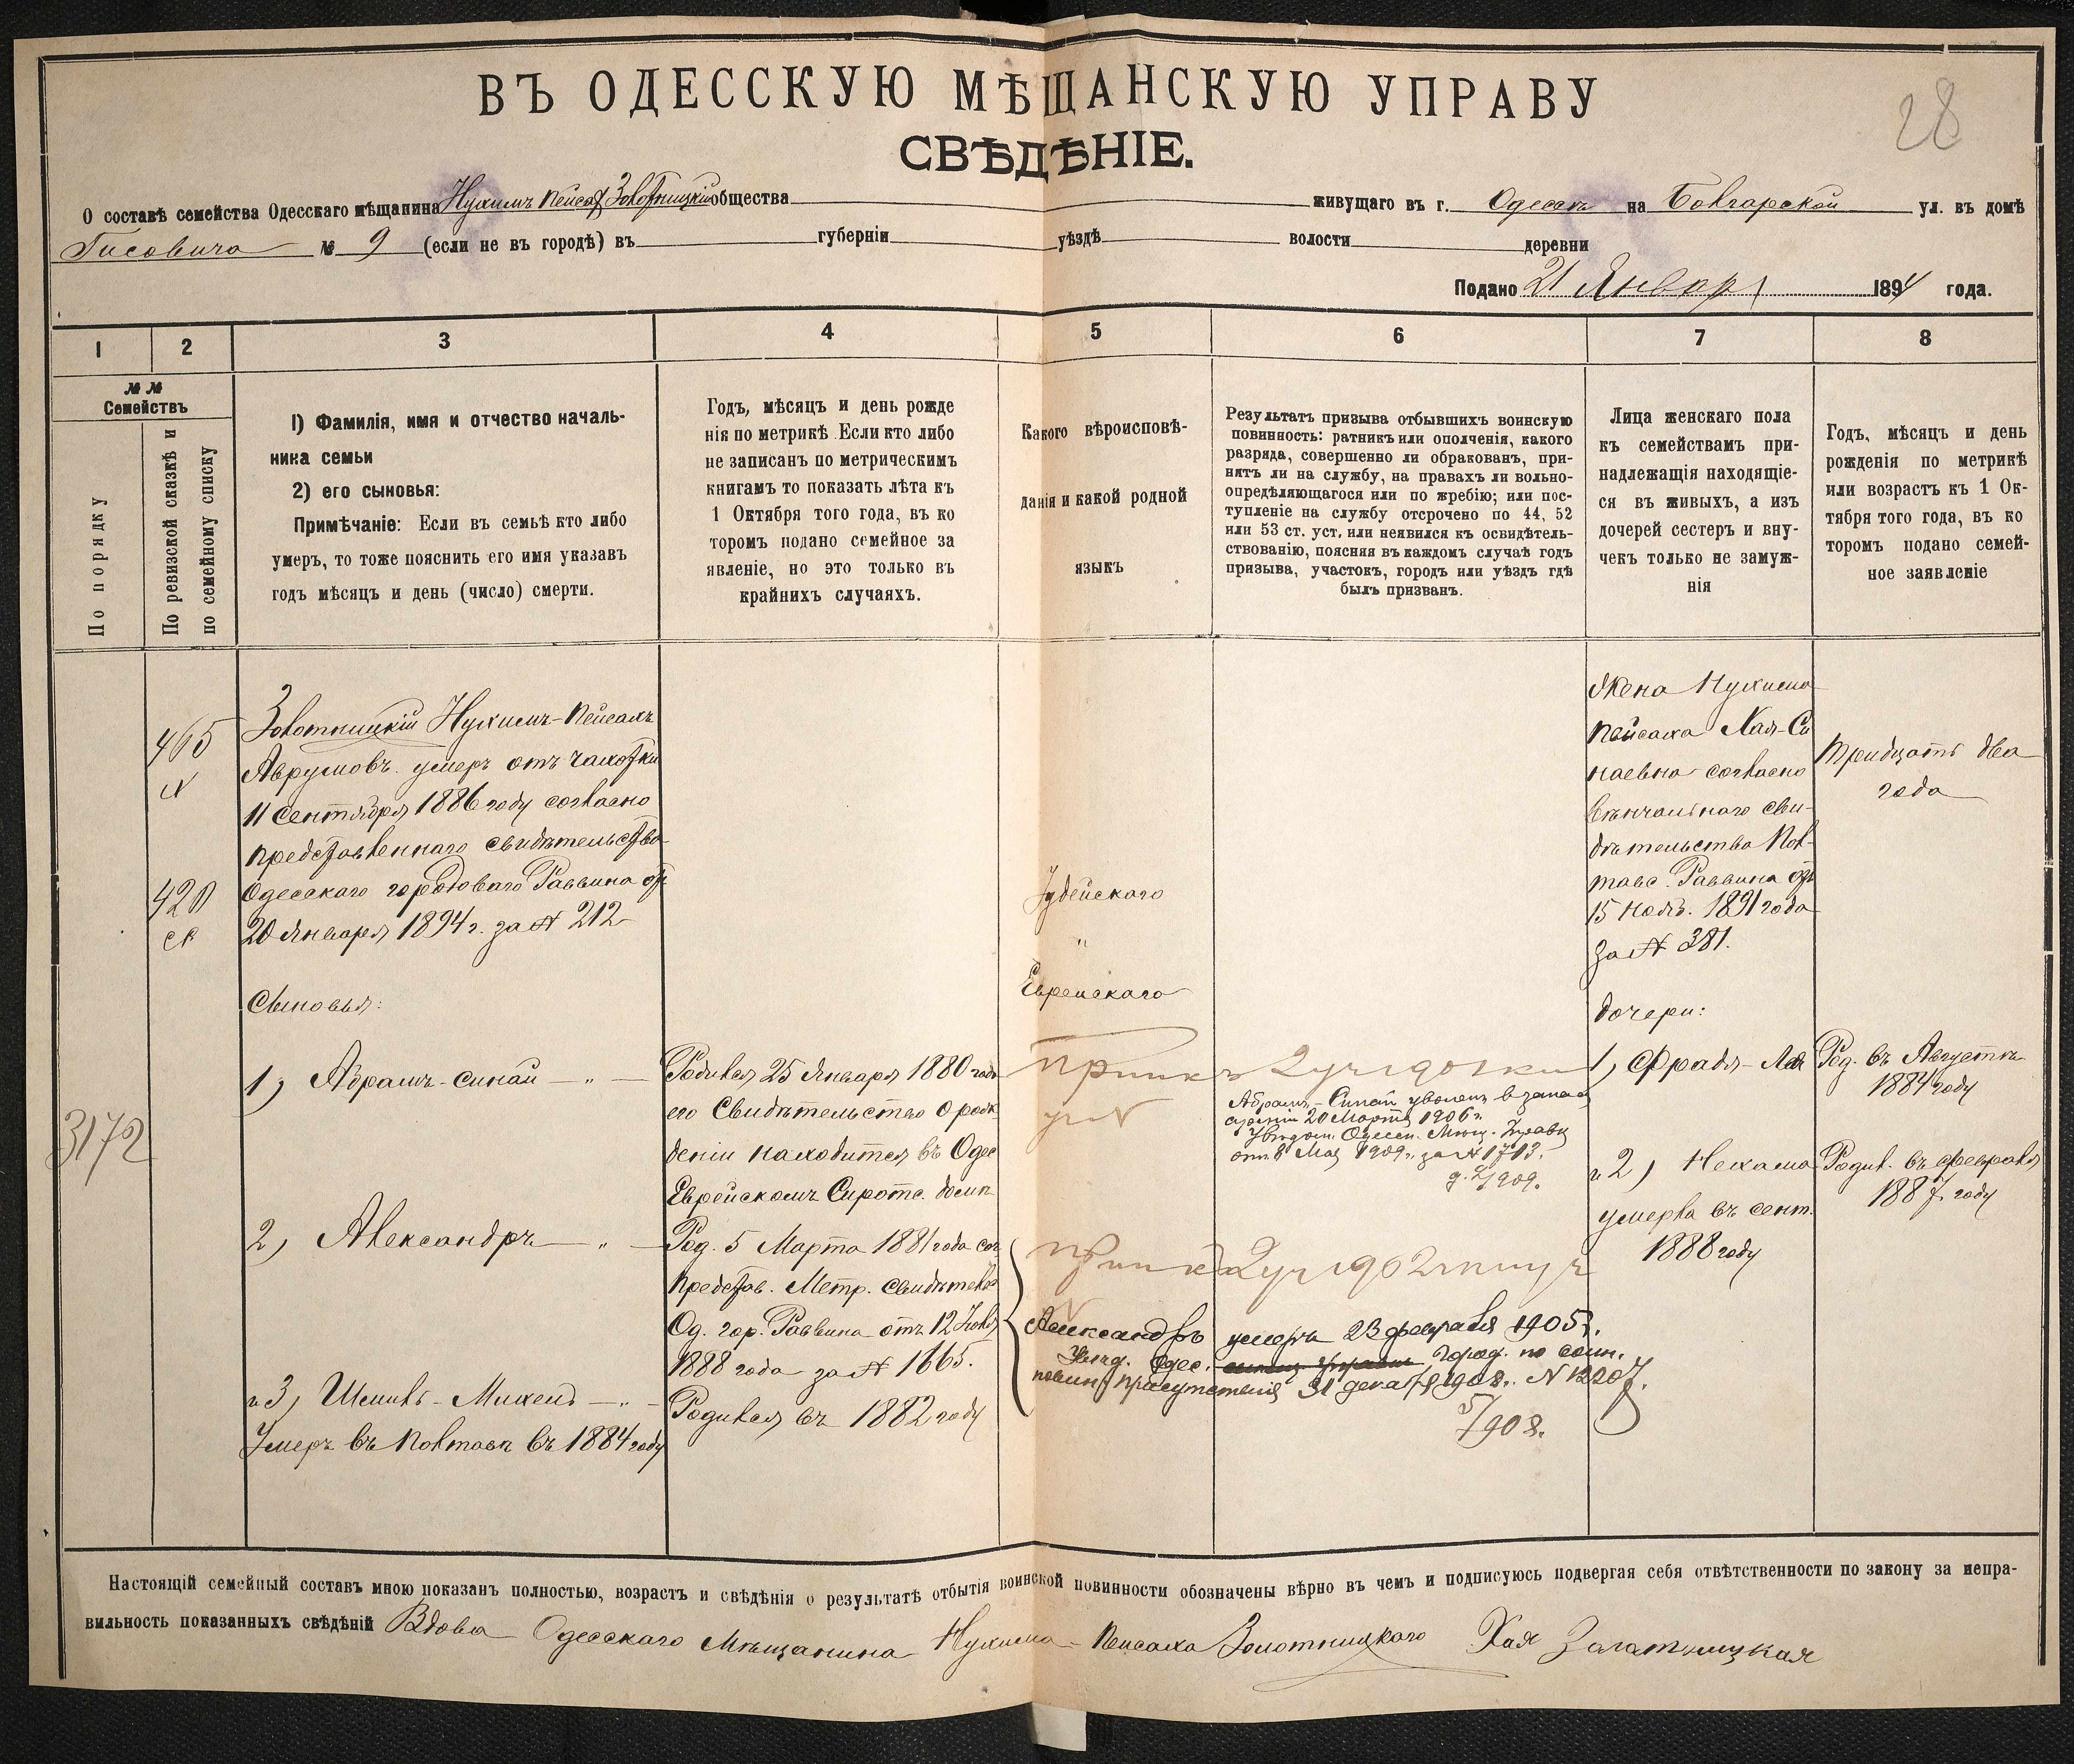 ВЪ ОДЕССКУЮ МѢЩАНСКУЮ УПРАВУ
28
СВѢДѢНІЕ.
О составѣ семейства Одесскаго мѣщанина Нухимъ Пейсах Золотницкій общества живущаго въ г. Одессѣ на Болгарской ул. въ домѣ
Гисовича № 9 (если не въ городѣ) въ губерніи уѣздѣ волости деревни
Подано 21 Января 1894 года.
1 2 3 4 5 6 7 8
№ №
Семействъ
По порядку
По ревизской сказкѣ и
по семейному списку
1) Фамилія, имя и отчество началь-
ника семьи
2) его сыновья:
Примѣчаніе: Если въ семьѣ кто либо
умеръ, то тоже пояснить его имя указавъ
годъ мѣсяцъ и день (число) смерти.
Годъ, мѣсяцъ и день рожде
нія по метрикѣ Если кто либо
не записанъ по метрическимъ
книгамъ то показать лѣта къ
1 Октября того года, въ ко
торомъ подано семейное за
явленіе, но это только въ
крайнихъ случаяхъ.
Какого вѣроисповѣ-
данія и какой родной
языкъ
Результатъ призыва отбывшихъ воинскую
повинность: ратникъ или ополченія, какого
разряда, совершенно ли обракованъ, при-
нятъ ли на службу, на правахъ ли вольно-
опредѣляющагося или по жребію; или пос-
тупленіе на службу отсрочено по 44, 52
или 53 ст. уст. или неявился къ освидѣтель-
ствованію, поясняя въ каждомъ случаѣ годъ
призыва, участокъ, городъ или уѣздъ гдѣ
былъ призванъ.
Лица женскаго пола
къ семействамъ при-
надлежащія находящіе-
ся въ живыхъ, а изъ
дочерей сестеръ и вну-
чекъ только не замуж-
нія
Годъ, мѣсяцъ и день
рожденія по метрикѣ
или возрастъ къ 1 Ок-
тября того года, въ ко
торомъ подано семей-
ное заявленіе
465
420
ск
3172
Золотницкій Нухимъ-Пейсахъ
Аврумовъ умеръ отъ чахотки
11 Сентября 1886 году согласно
представленнаго свидѣтельства
Одесскаго городоваго Раввина отъ
20 Января 1894 г. за № 212
Сыновья:
1) Абрамъ-Синай — " —
2) Александръ — " —
и 3) Шмиль-Михель — " —
Умеръ въ Полтавѣ въ 1884 году
Родился 25 Января 1880 года
его Свидѣтельство о рож
деніи находится въ Одес
Еврейскомъ Сиротс. домѣ
Род. 5 Марта 1881 года сог
представ. Метр. Свидѣтель
Од. гор. Раввина отъ 12 Іюля
1888 года за № 1665.
Родился въ 1882 году
Іудейскаго
"
Еврейскаго
Абрамъ-Синай уволенъ в запас
арміи 20 Марта 1906 г.
Увѣдом. Одесск. Мѣщ. Управы
отъ 8 Мая 1909 г. за № 1713.
Александръ умеръ 23 февраля 1905 г.
Увѣд. Одес. Город. по воин.
повин. присутствія 31 декабря 1908 г. № 12207.
5/908.
Жена Нухима
Пейсаха Хая-Си
наевна согласно
вѣнчальнаго сви-
дѣтельства Пол-
тавс. Раввина отъ
15 Нояб. 1891 года
за № 381.
Дочери:
1) Фрадя-Лея
и 2) Нехама
умерла въ сент.
1888 году
Тридцать два
года
Род. въ Августѣ
1884 году
Родил. въ февралѣ
1887 году
Настоящій семейный составъ мною показанъ полностью, возрастъ и свѣдѣнія о результатѣ отбытія воинской повинности обозначены вѣрно въ чемъ и подписуюсь подвергая себя отвѣтственности по закону за непра-
вильность показанныхъ свѣдѣній Вдова Одесскаго Мѣщанина Нухима-Пейсаха Золотницкаго Хая Залатницкая